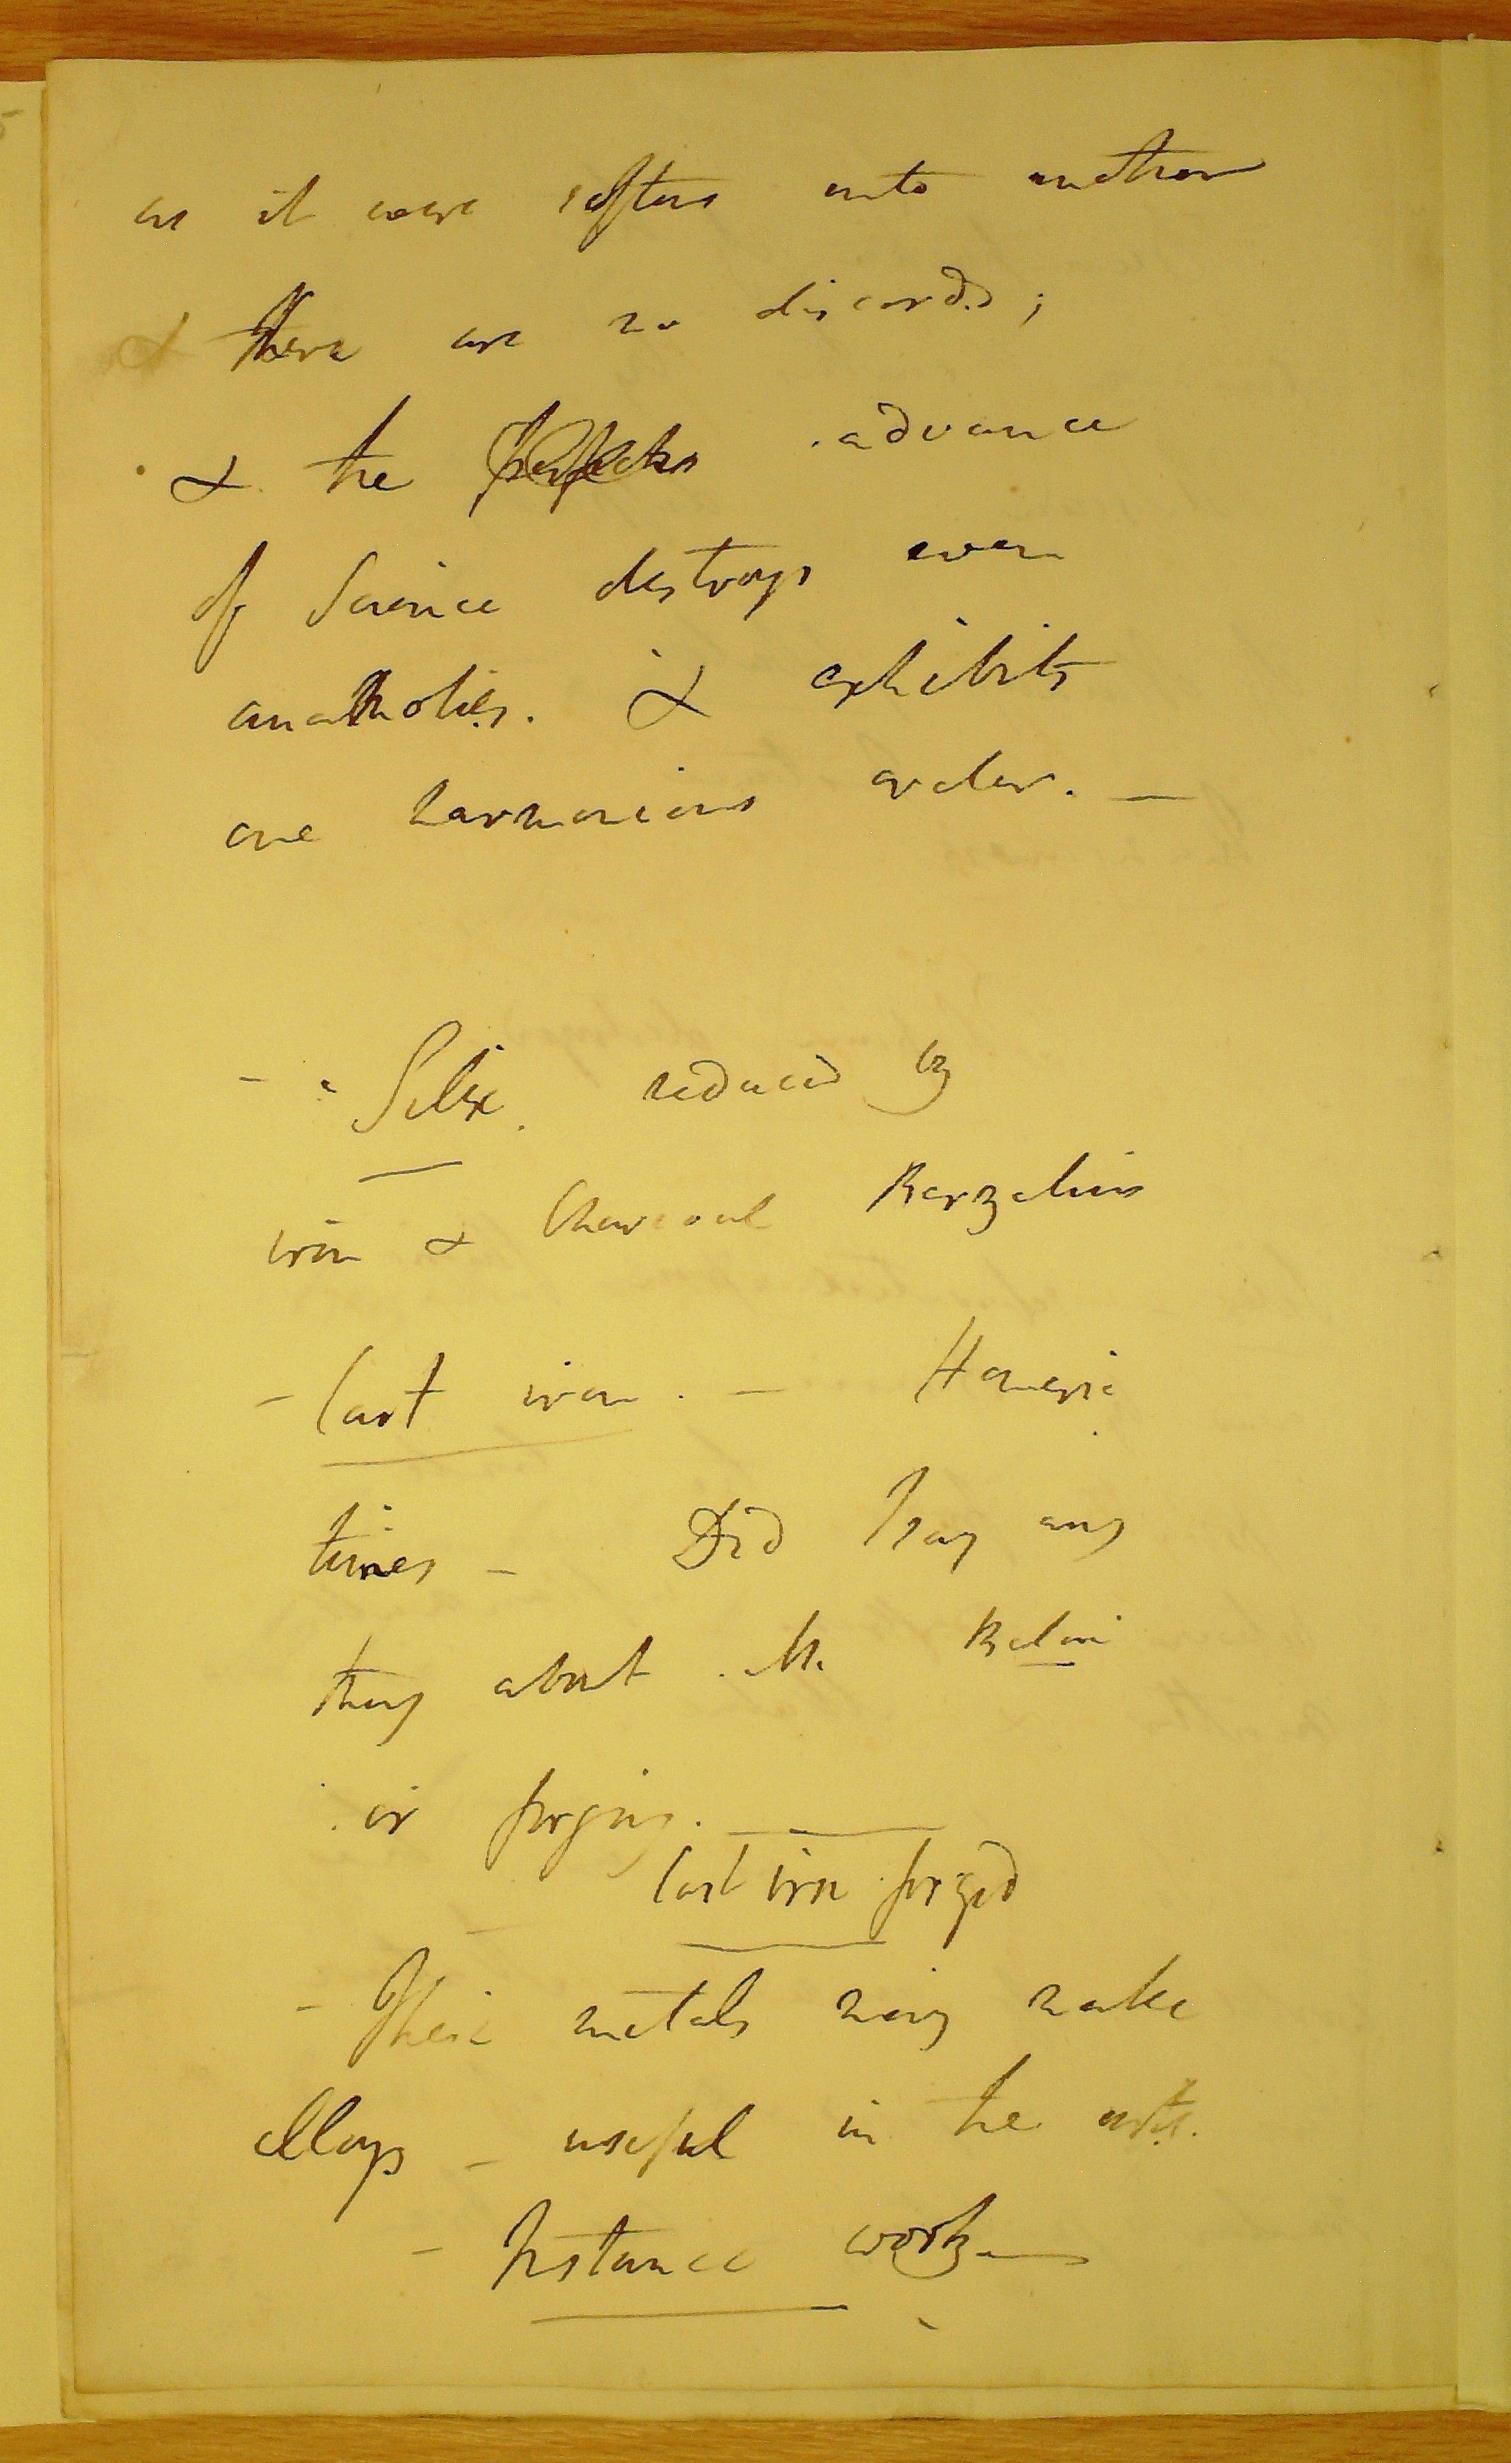 as it were softens into another
& there are no discords;
& the advance
of Science destroys even
anamolies. & exhibits
one harmonious order. —
- Silex. reduced by
iron & Charcoal Berzelius
- Cast iron. — Homeric
times - Did say any
thing about Mr.
or forging. —
Cast iron forged
- These metals may make
alloys - useful in the arts.
- Instance works